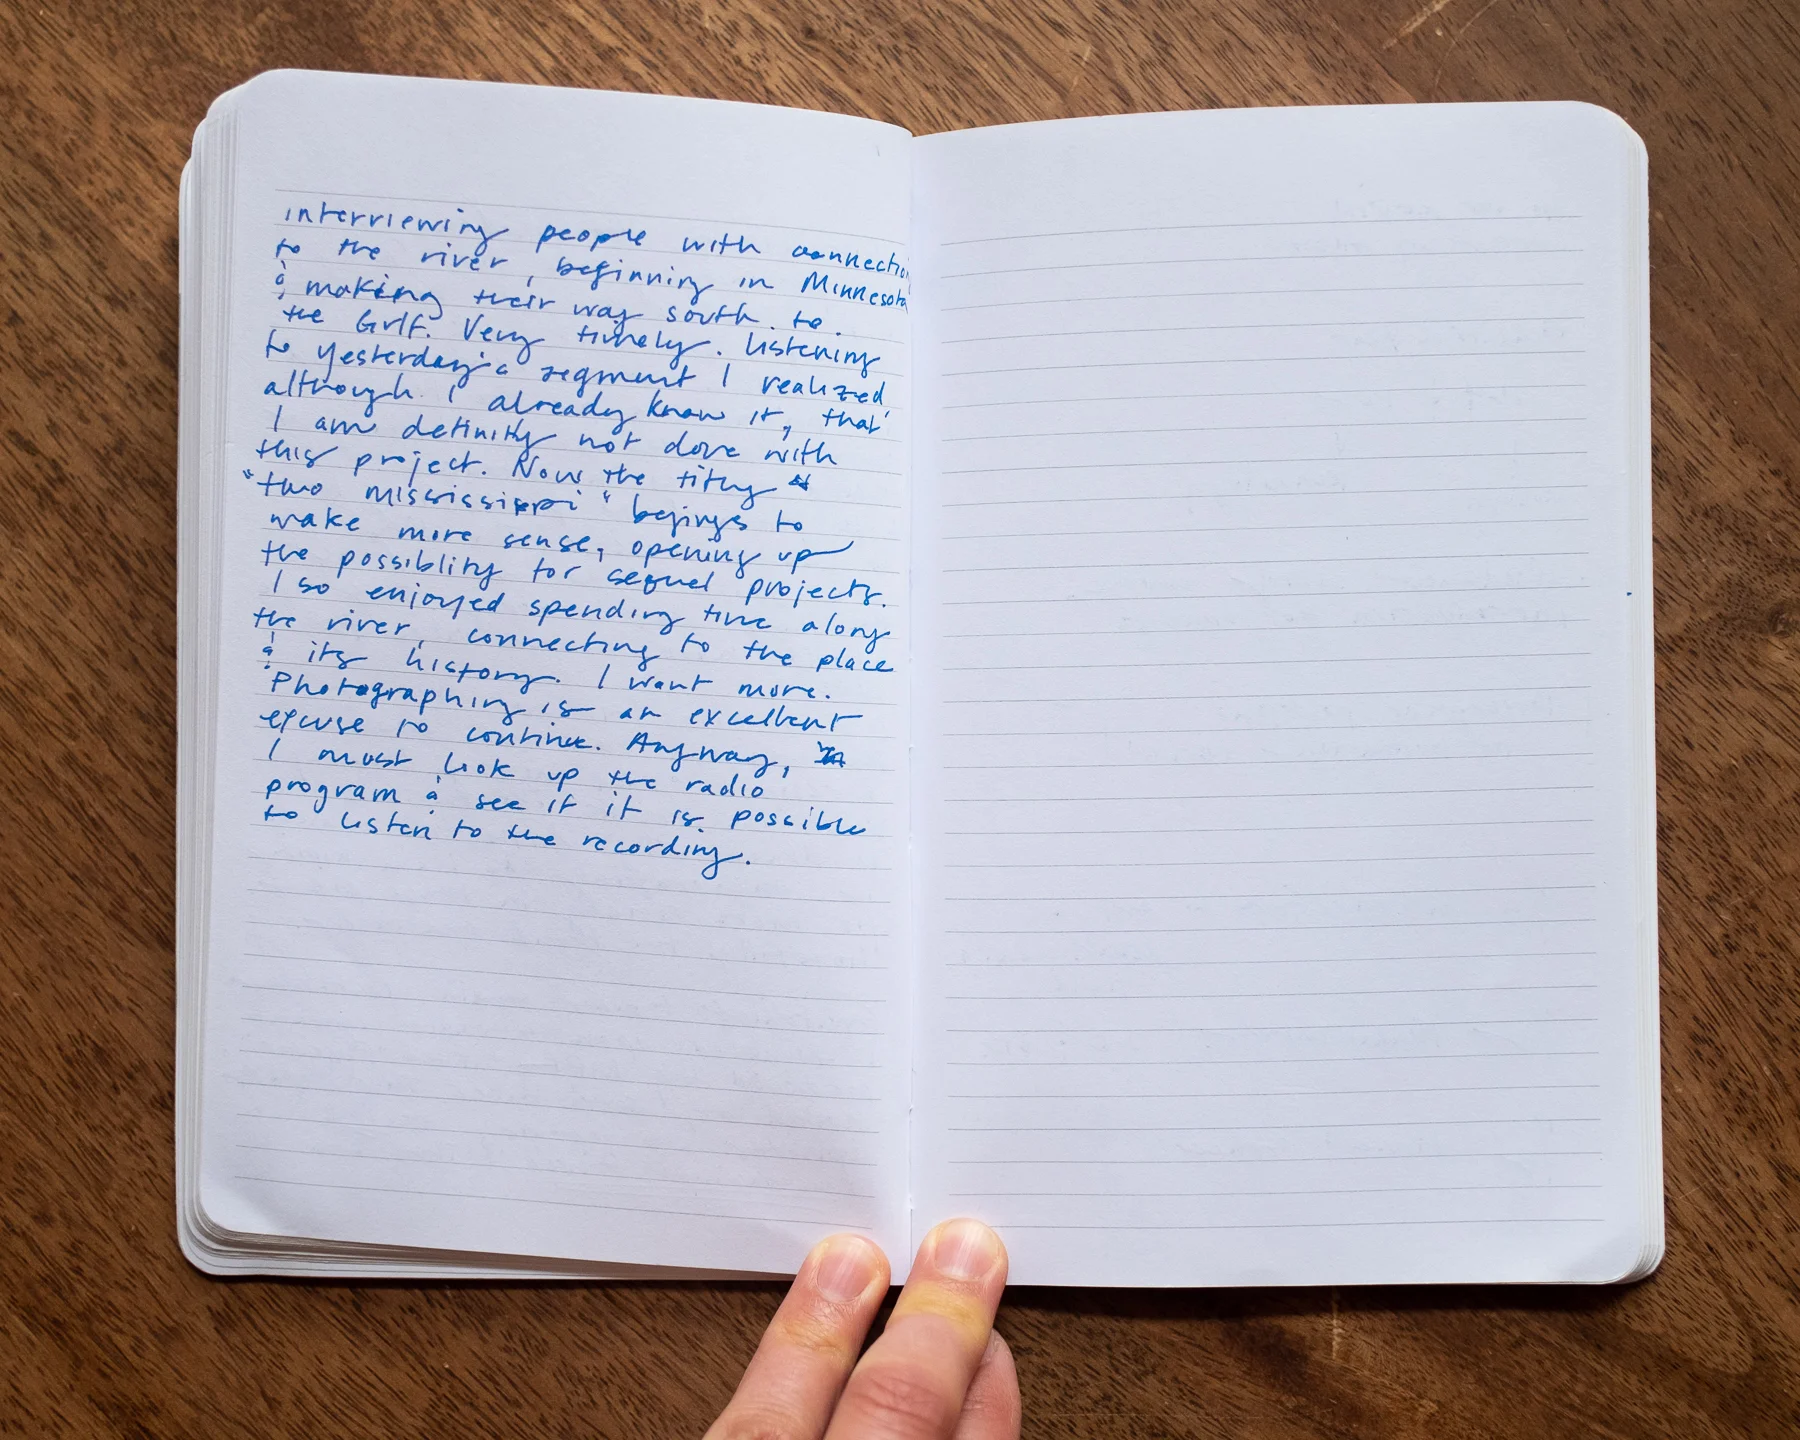 interviewing people with connection
to the river, beginning in Minnesota
& making their way south to
the Gulf. Very timely. Listening
to yesterday's segment I realized
although I already know it, that
I am definitly not done with
this project. Now the
"two mississippi" begings to
make more sense, opening up
the possiblity for sequel projects.
I so enjoyed spending time along
the river, connecting to the place
& its history. I want more.
Photographing is an excellent
excuse to continue. Anyway,
I must look up the radio
program & see if it is possible
to listen to the recording.